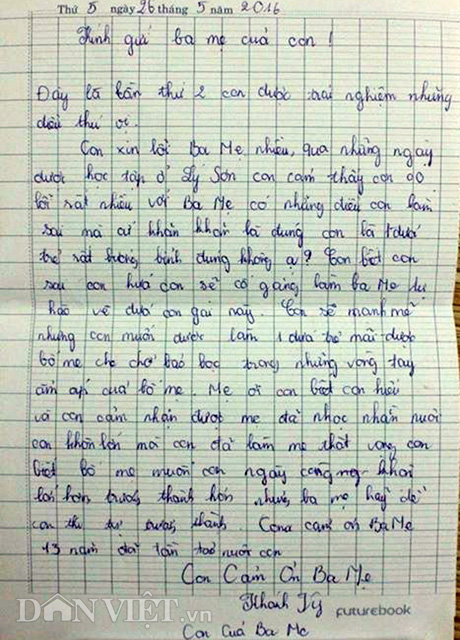 Thứ 5 ngày 26 tháng 5 năm 2016
Kính gửi ba mẹ của con !
Đây là lần thứ 2 con được trải nghiệm những
điều thú vị.
Con xin lỗi Ba Mẹ nhiều, qua những ngày
được học tập ở Lý Sơn con cảm thấy con có
lỗi rất nhiều với Ba Mẹ có những điều con làm
sai mà cứ khăn khăn là đúng con là 1 đứa
trẻ rất bướng bỉnh đúng không ạ? Con biết con
sai con hứa con sẽ cố gắng làm ba Mẹ tự
hào về đứa con gái này. Con sẽ mạnh mẽ
nhưng con muốn được làm 1 đứa trẻ mãi được
bố mẹ che chở bao bọc trong những vòng tay
ấm áp của bố mẹ. Mẹ ơi con biết con hiểu
và con cảm nhận được mẹ đã nhọc nhằn nuôi
con khôn lớn mà con đã làm mẹ thất vọng con
biết bố mẹ muốn con ngày càng khôn
lớn hơn trưởng thành hơn nhưng ba mẹ hãy để
con tự trưởng thành. Cong cảm ơn Ba Mẹ
13 năm đã tần tảo nuôi con
Con Cảm Ơn Ba Mẹ
Khánh Vỹ
Con Của Ba Mẹ
DÂN VIỆT.vn
futurebook